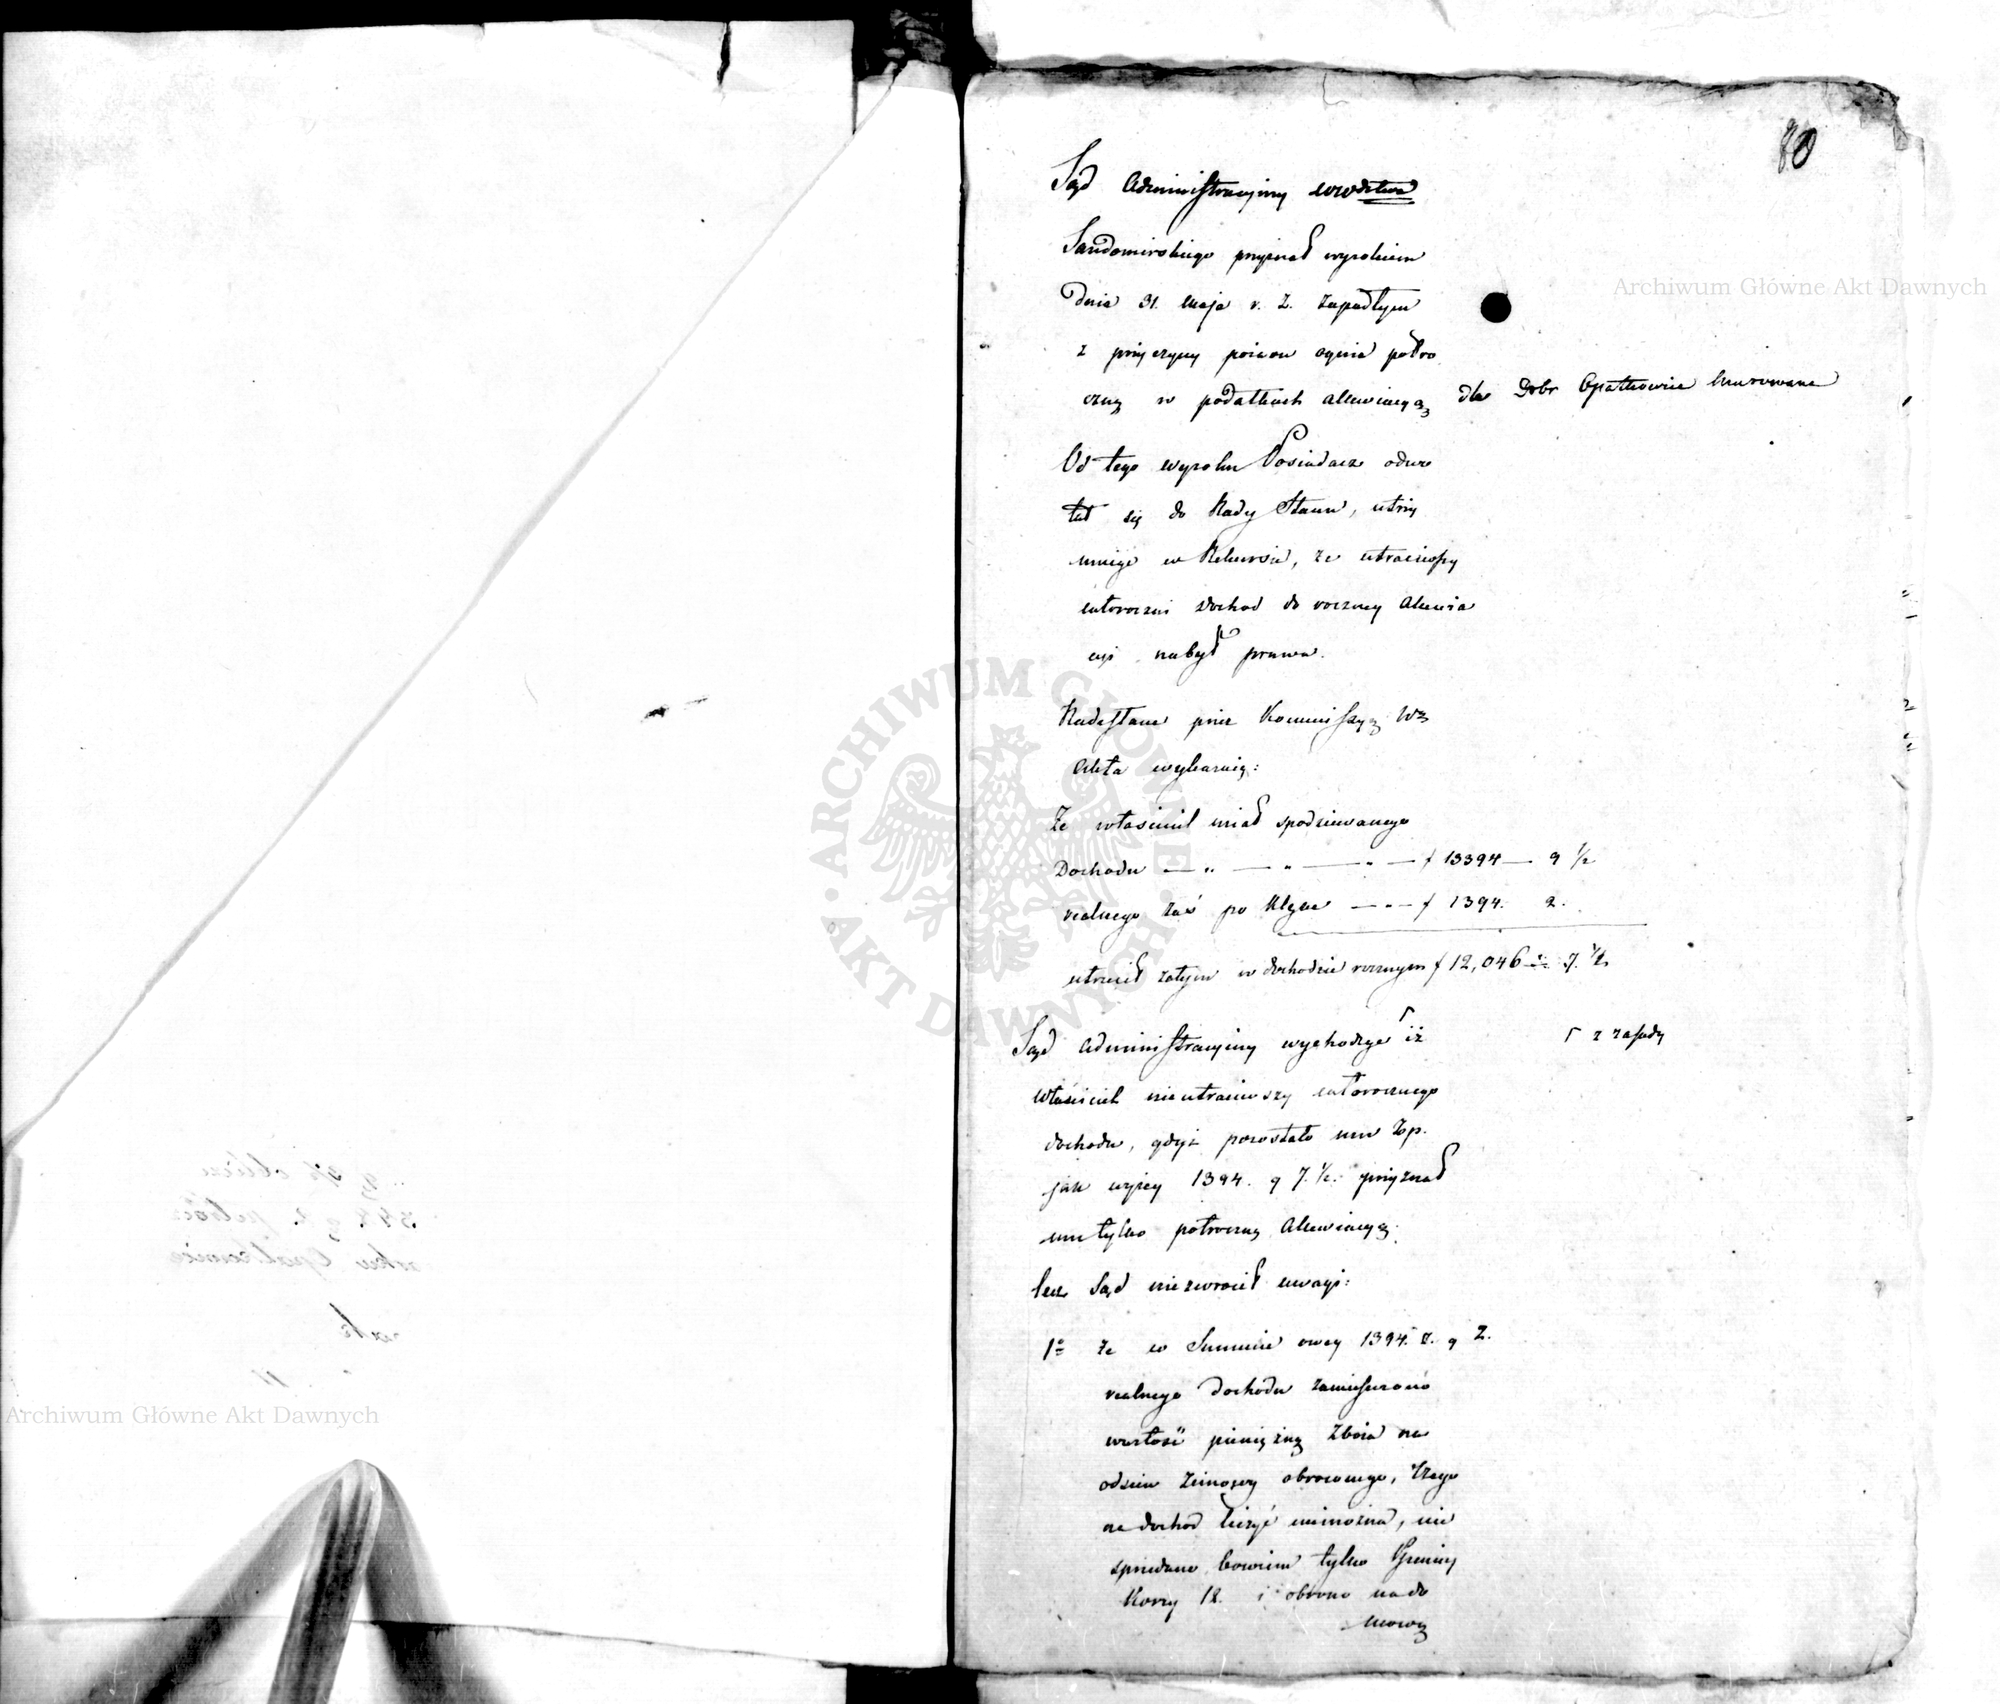 80
Sąd Administracyiny wwdztwa
Sandomirskiego przyznał wyrokiem
Dnia 31. Maja r. z. zapadłym
z przyczyny pożaru ognia półro
czną w podatkach allewiacyą dla Dobr Opatkowice Murowane
Od tego wyroku Posiadacz odwo
łał się do Rady Stanu, utrzy
muiąc w Rekursie, że utraciwszy
całoroczni dochod do roczney Alewia
cyi nabył prawa.
Nadesłane przez Kommissyą Wą
Akta wykazuią:
Że właściciel miał spodziewanego
Dochodu — „ — „ — „ — f 13394 — 9 ½
realnego zaś po klęsce — „ — f 1394. 2.
utracił zatym w dochodzie rocznym f 12,046 — 7. ½
Sąd Administracyiny wychodząc ┌ iż ┌ z zasady
Właściciel nieutraciwszy całorocznego
dochodu, gdyż pozostało mu Złp.
jak wyżey 1394. g 7. ½. przyznał
mu tylko połroczną Alewiacyą.
lecz Sąd niezwrócił uwagi:
1o że w Summie owey 1394. Z. g 2.
realnego dochodu zamieszczono
wartość pieniężną Zboża na
odsiew zimowy obroconego, Czego
na dochod liczyć niemożna, nie
sprzedano bowiem tylko Pszenicy
Korcy 12. i obrono na do
mową
Archiwum Główne Akt Dawnych
Archiwum Główne Akt Dawnych
ARCHIWUM GŁÓWNE AKT DAWNYCH